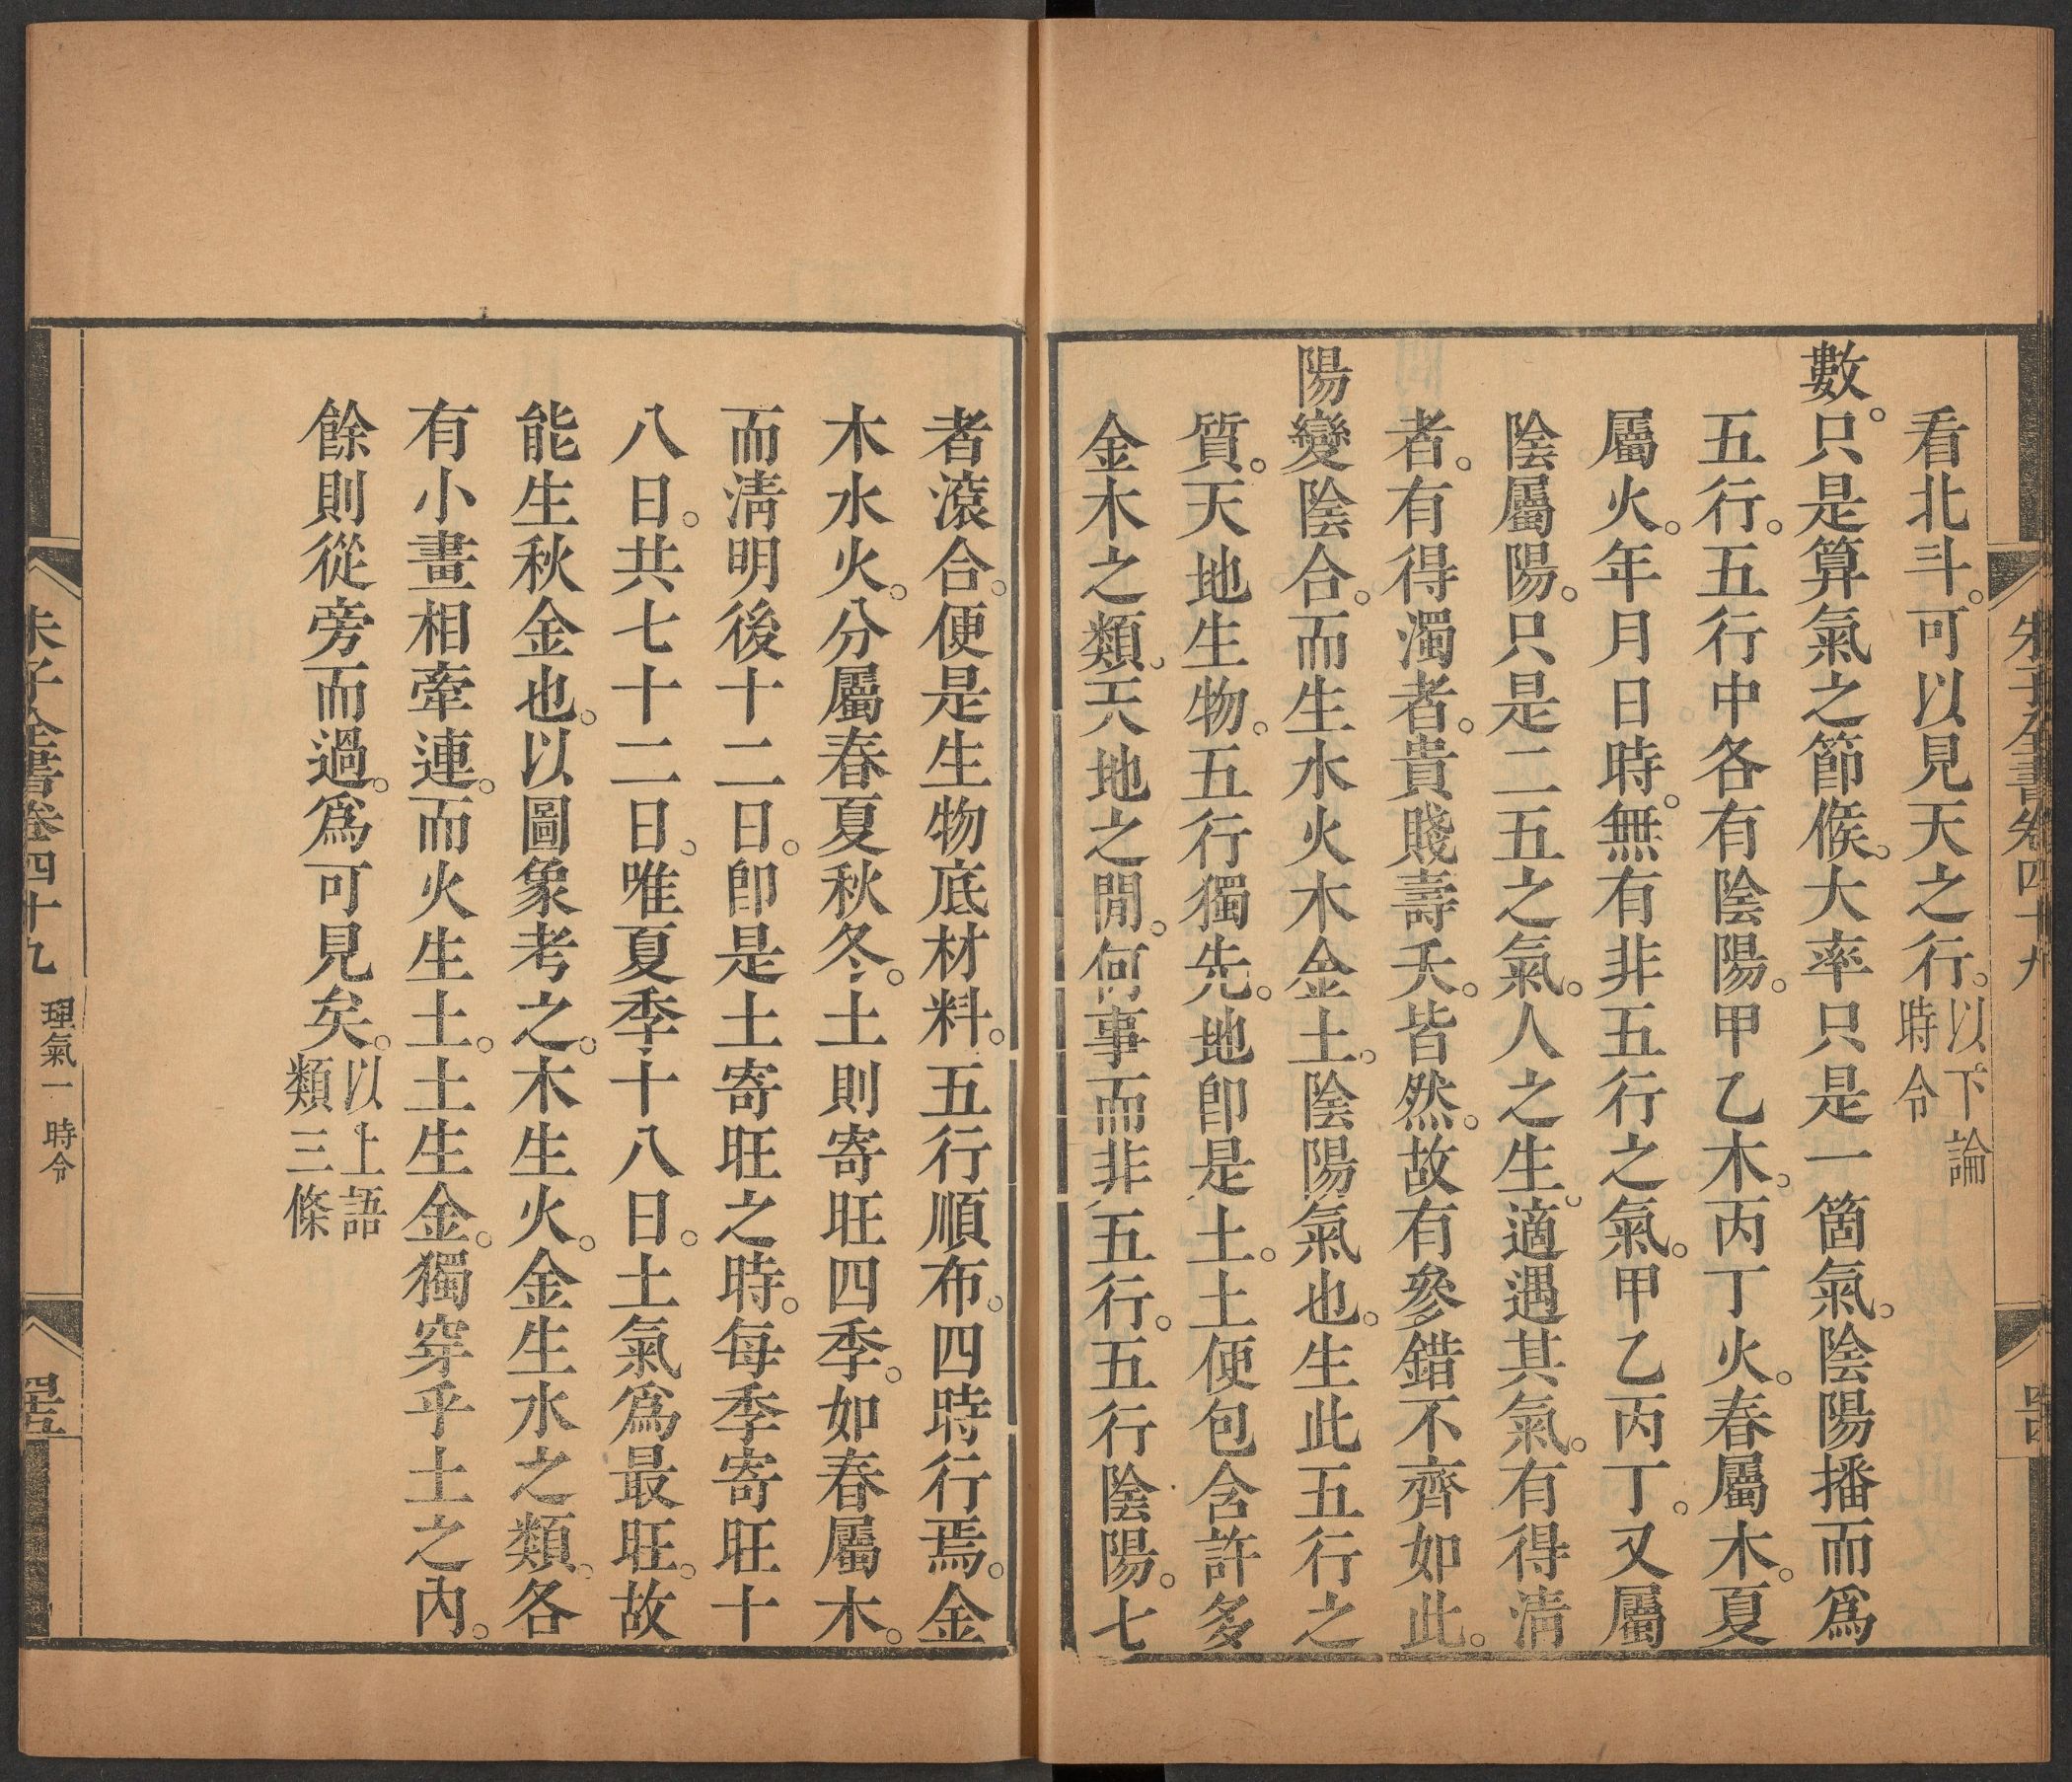 朱子全書卷四十九
看北斗。可以見天之行。以下論時令
數。只是算氣之節候。大率只是一箇氣。陰陽播而爲
五行。五行中各有陰陽。甲乙木。丙丁火。春屬木。夏
屬火。年月日時。無有非五行之氣。甲乙丙丁。又屬
陰屬陽。只是二五之氣。人之生。適遇其氣。有得清
者。有得濁者。貴賤壽夭。皆然。故有參錯不齊如此。
陽變陰合。而生水火木金土。陰陽氣也。生此五行之
質。天地生物。五行獨先。地卽是土。土便包含許多
金木之類。天地之閒。何事而非五行。五行陰陽。七
者滾合。便是生物底材料。五行順布。四時行焉。金
木水火。分屬春夏秋冬。土則寄旺四季。如春屬木。
而淸明後十二日。卽是土寄旺之時。每季寄旺十
八日。共七十二日。唯夏季十八日。土氣爲最旺。故
能生秋金也。以圖象考之。木生火。金生水之類。各
有小畫相牽連。而火生土。土生金。獨穿乎土之內。
餘則從旁而過。爲可見矣。以上語類三條
朱子全書卷四十九 理氣一 時令